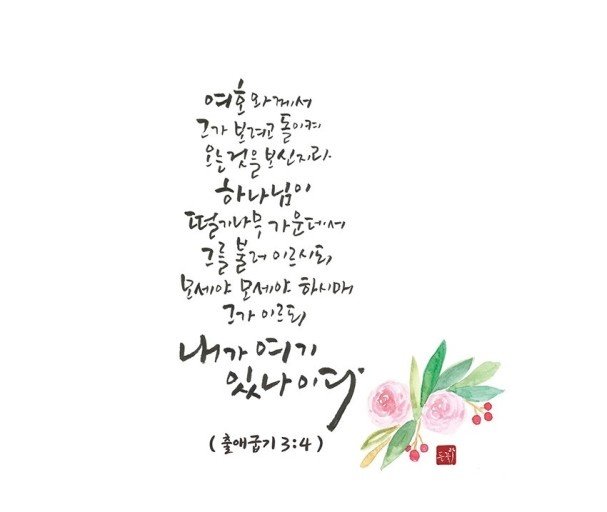 여호와께서
그가 보려고 돌이켜
오는 것을 보신지라.
하나님이
떨기나무 가운데서
그를 불러 이르시되
모세야 모세야 하시매
그가 이르되
내가 여기
있나이다.
(출애굽기 3:4)